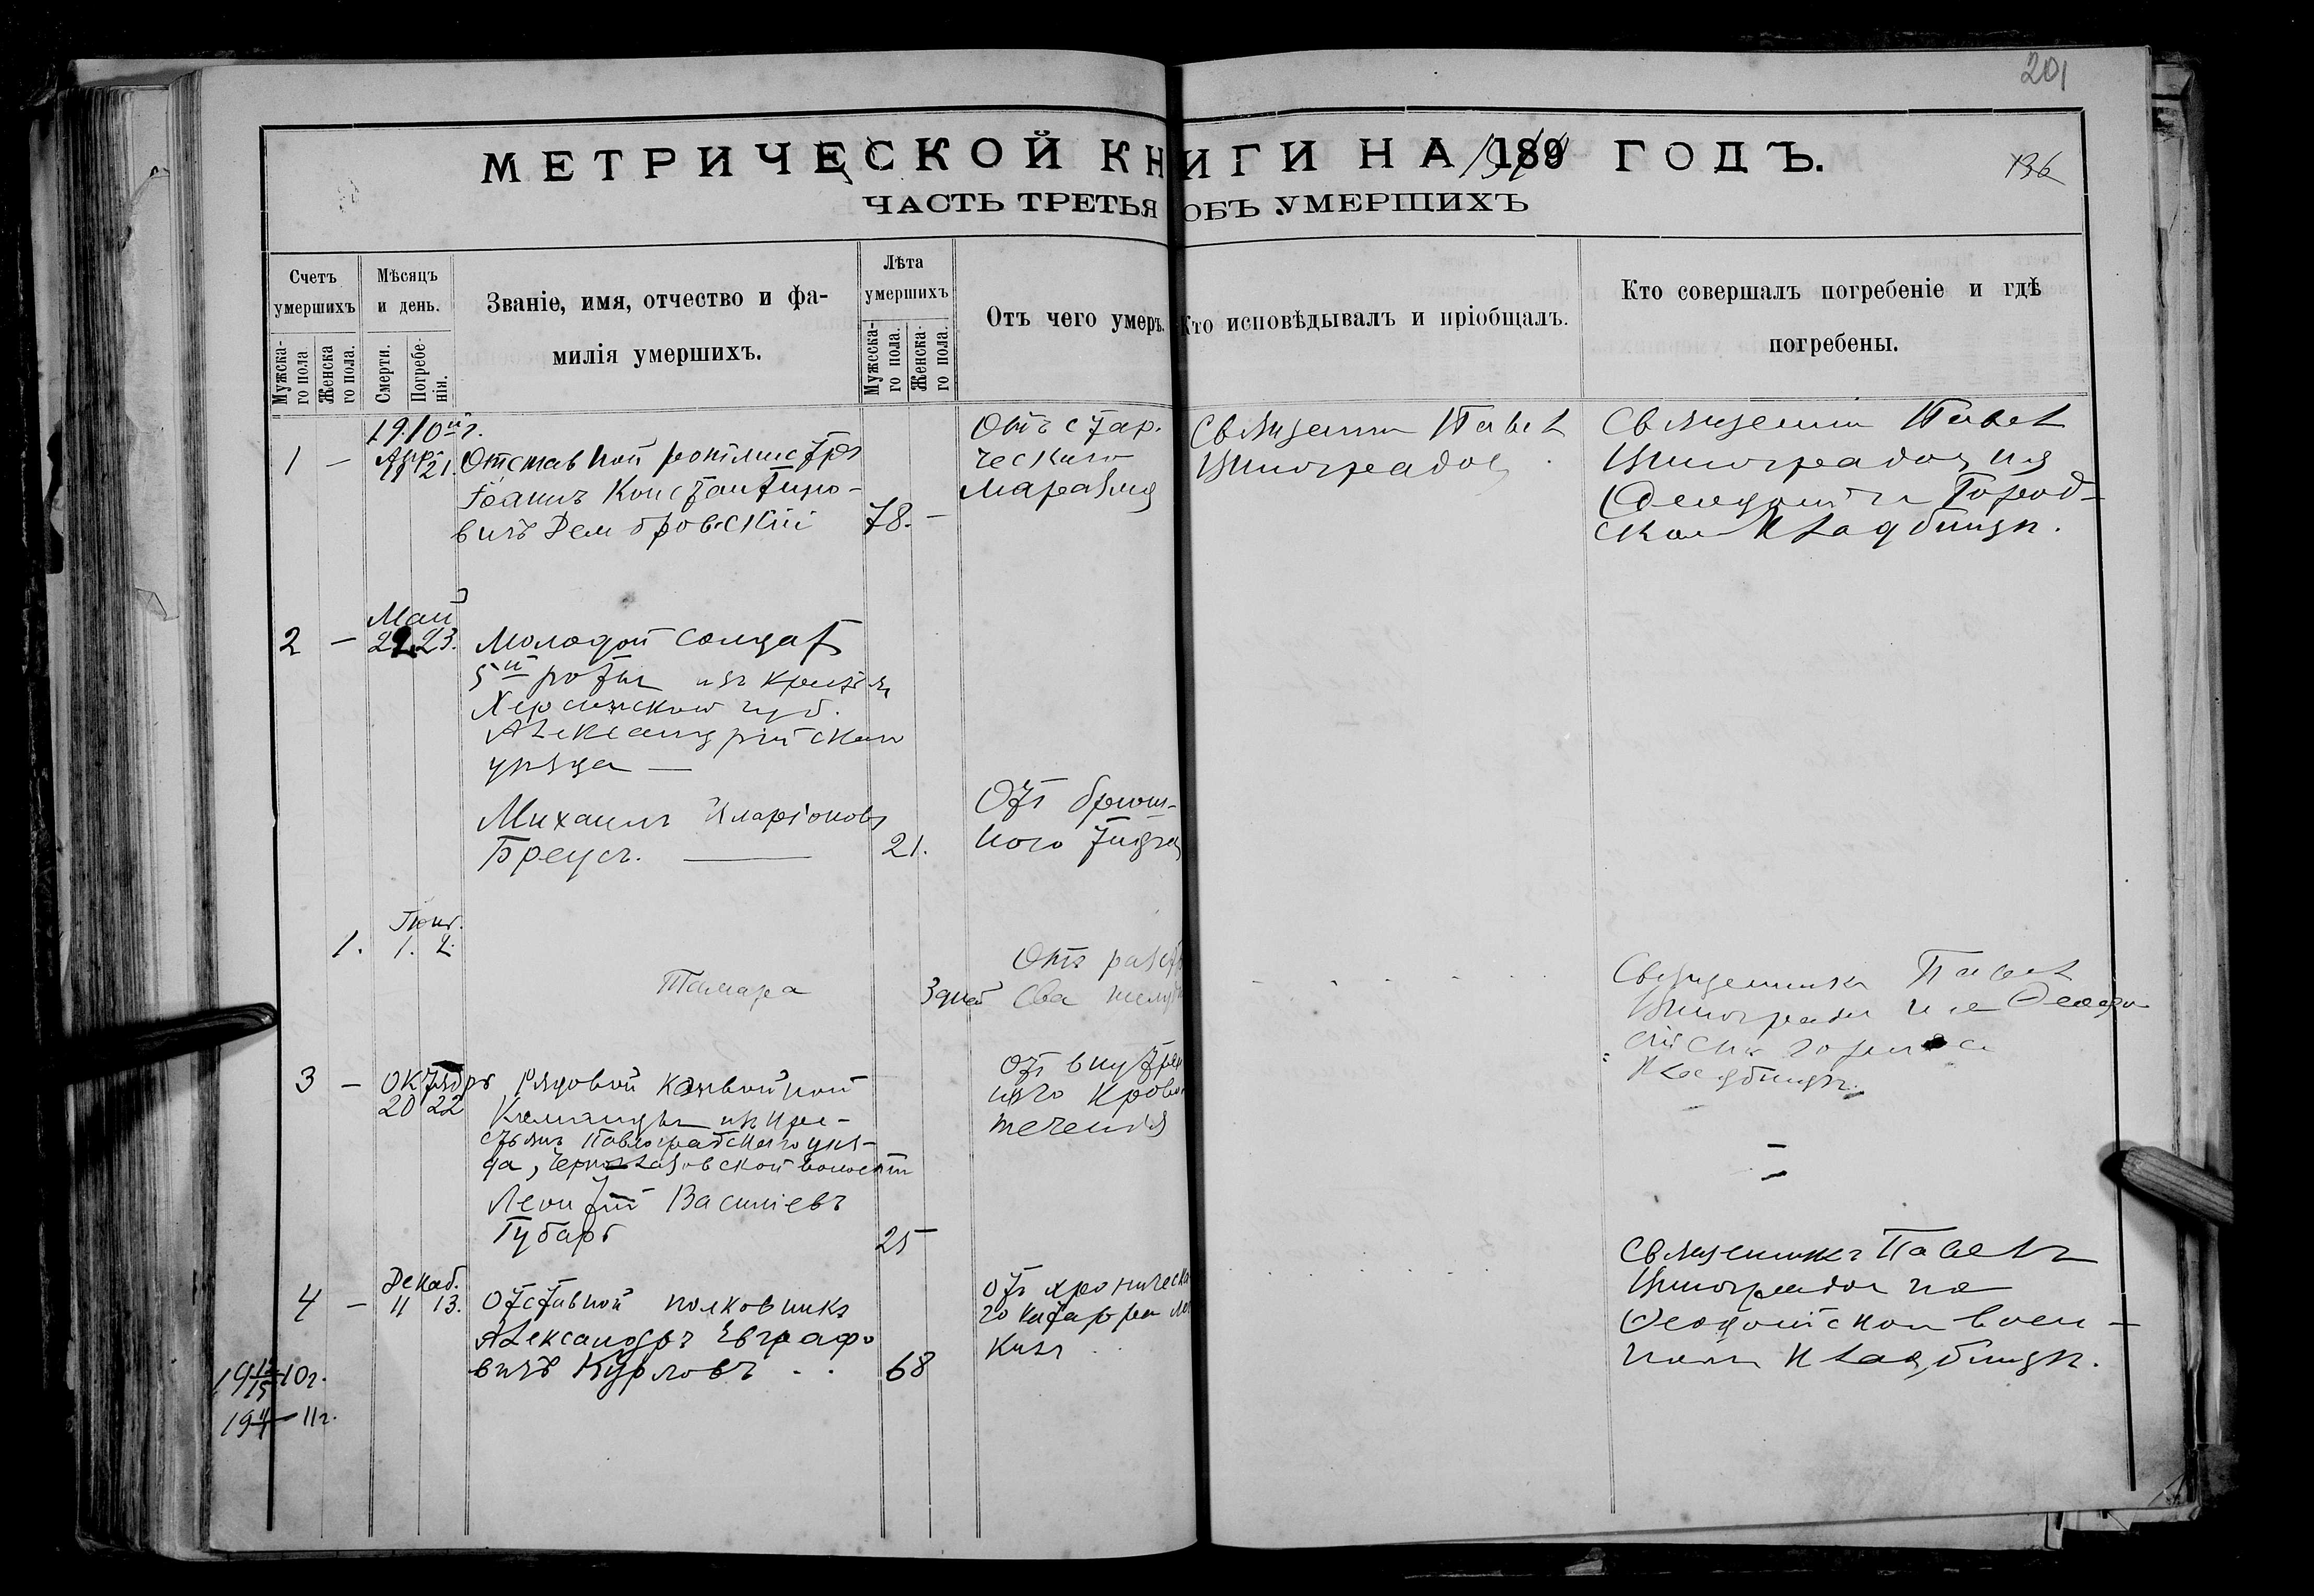 201
МЕТРИЧЕСКОЙ КНИГИ НА 189 ГОДЪ.
136
ЧАСТЬ ТРЕТЬЯ ОБЪ УМЕРШИХЪ
Счетъ умершихъ
Мужска-го пола
Женска го пола.
Мѣсяцъ и день.
Смерти.
Погребе-нія.
Званіе, имя, отчество и фа-
милія умершихъ.
Лѣта умершихъ
Мужеска-го пола.
Женска-го пола.
Отъ чего умеръ.
Кто исповѣдывалъ и пріобщалъ.
Кто совершалъ погребеніе и гдѣ
погребены.
1910 г.
1 — Апр. 21. Отставной ротмистръ
Іоаннъ Константино-
вичъ Домбровскій 78. —
Отъ стар-
ческаго
маразма
Священник Павел
Виноградов
Священник Павел
Виноградов на
Феодосійск Город-
ском кладбищѣ.
Май
2 — 22 23. Молодой солдат
5й роты изъ крестьян
Херсонской губ.
Александрійскаго
уѣзда —
Михаилъ Иларіоновъ
Бреусъ. — 21.
Отъ брюш-
ного тифа
1. 1. 2.
Тамара
3 дней
Отъ разст
ва желуд
Священникъ Павел
Виноградов на Феодо
кладбищѣ.
3 — Октябрь 20 22 Рядовой конвойной
Команды из кре-
стьянъ Павлоградскаго уѣз-
да, волости
Леонтій Васильевъ
Губарь 25
Отъ внутрен
няго крово
теченія
Декаб.
4 — 11 13. Отставной полковникъ
Александръ Евграфо
вичъ Курловъ . . 68
Отъ хроническа
го катарра ле
кихъ
Священникъ Павелъ
Виноградов на
Феодосійском воен-
ном кладбищѣ.
10г.
11г.